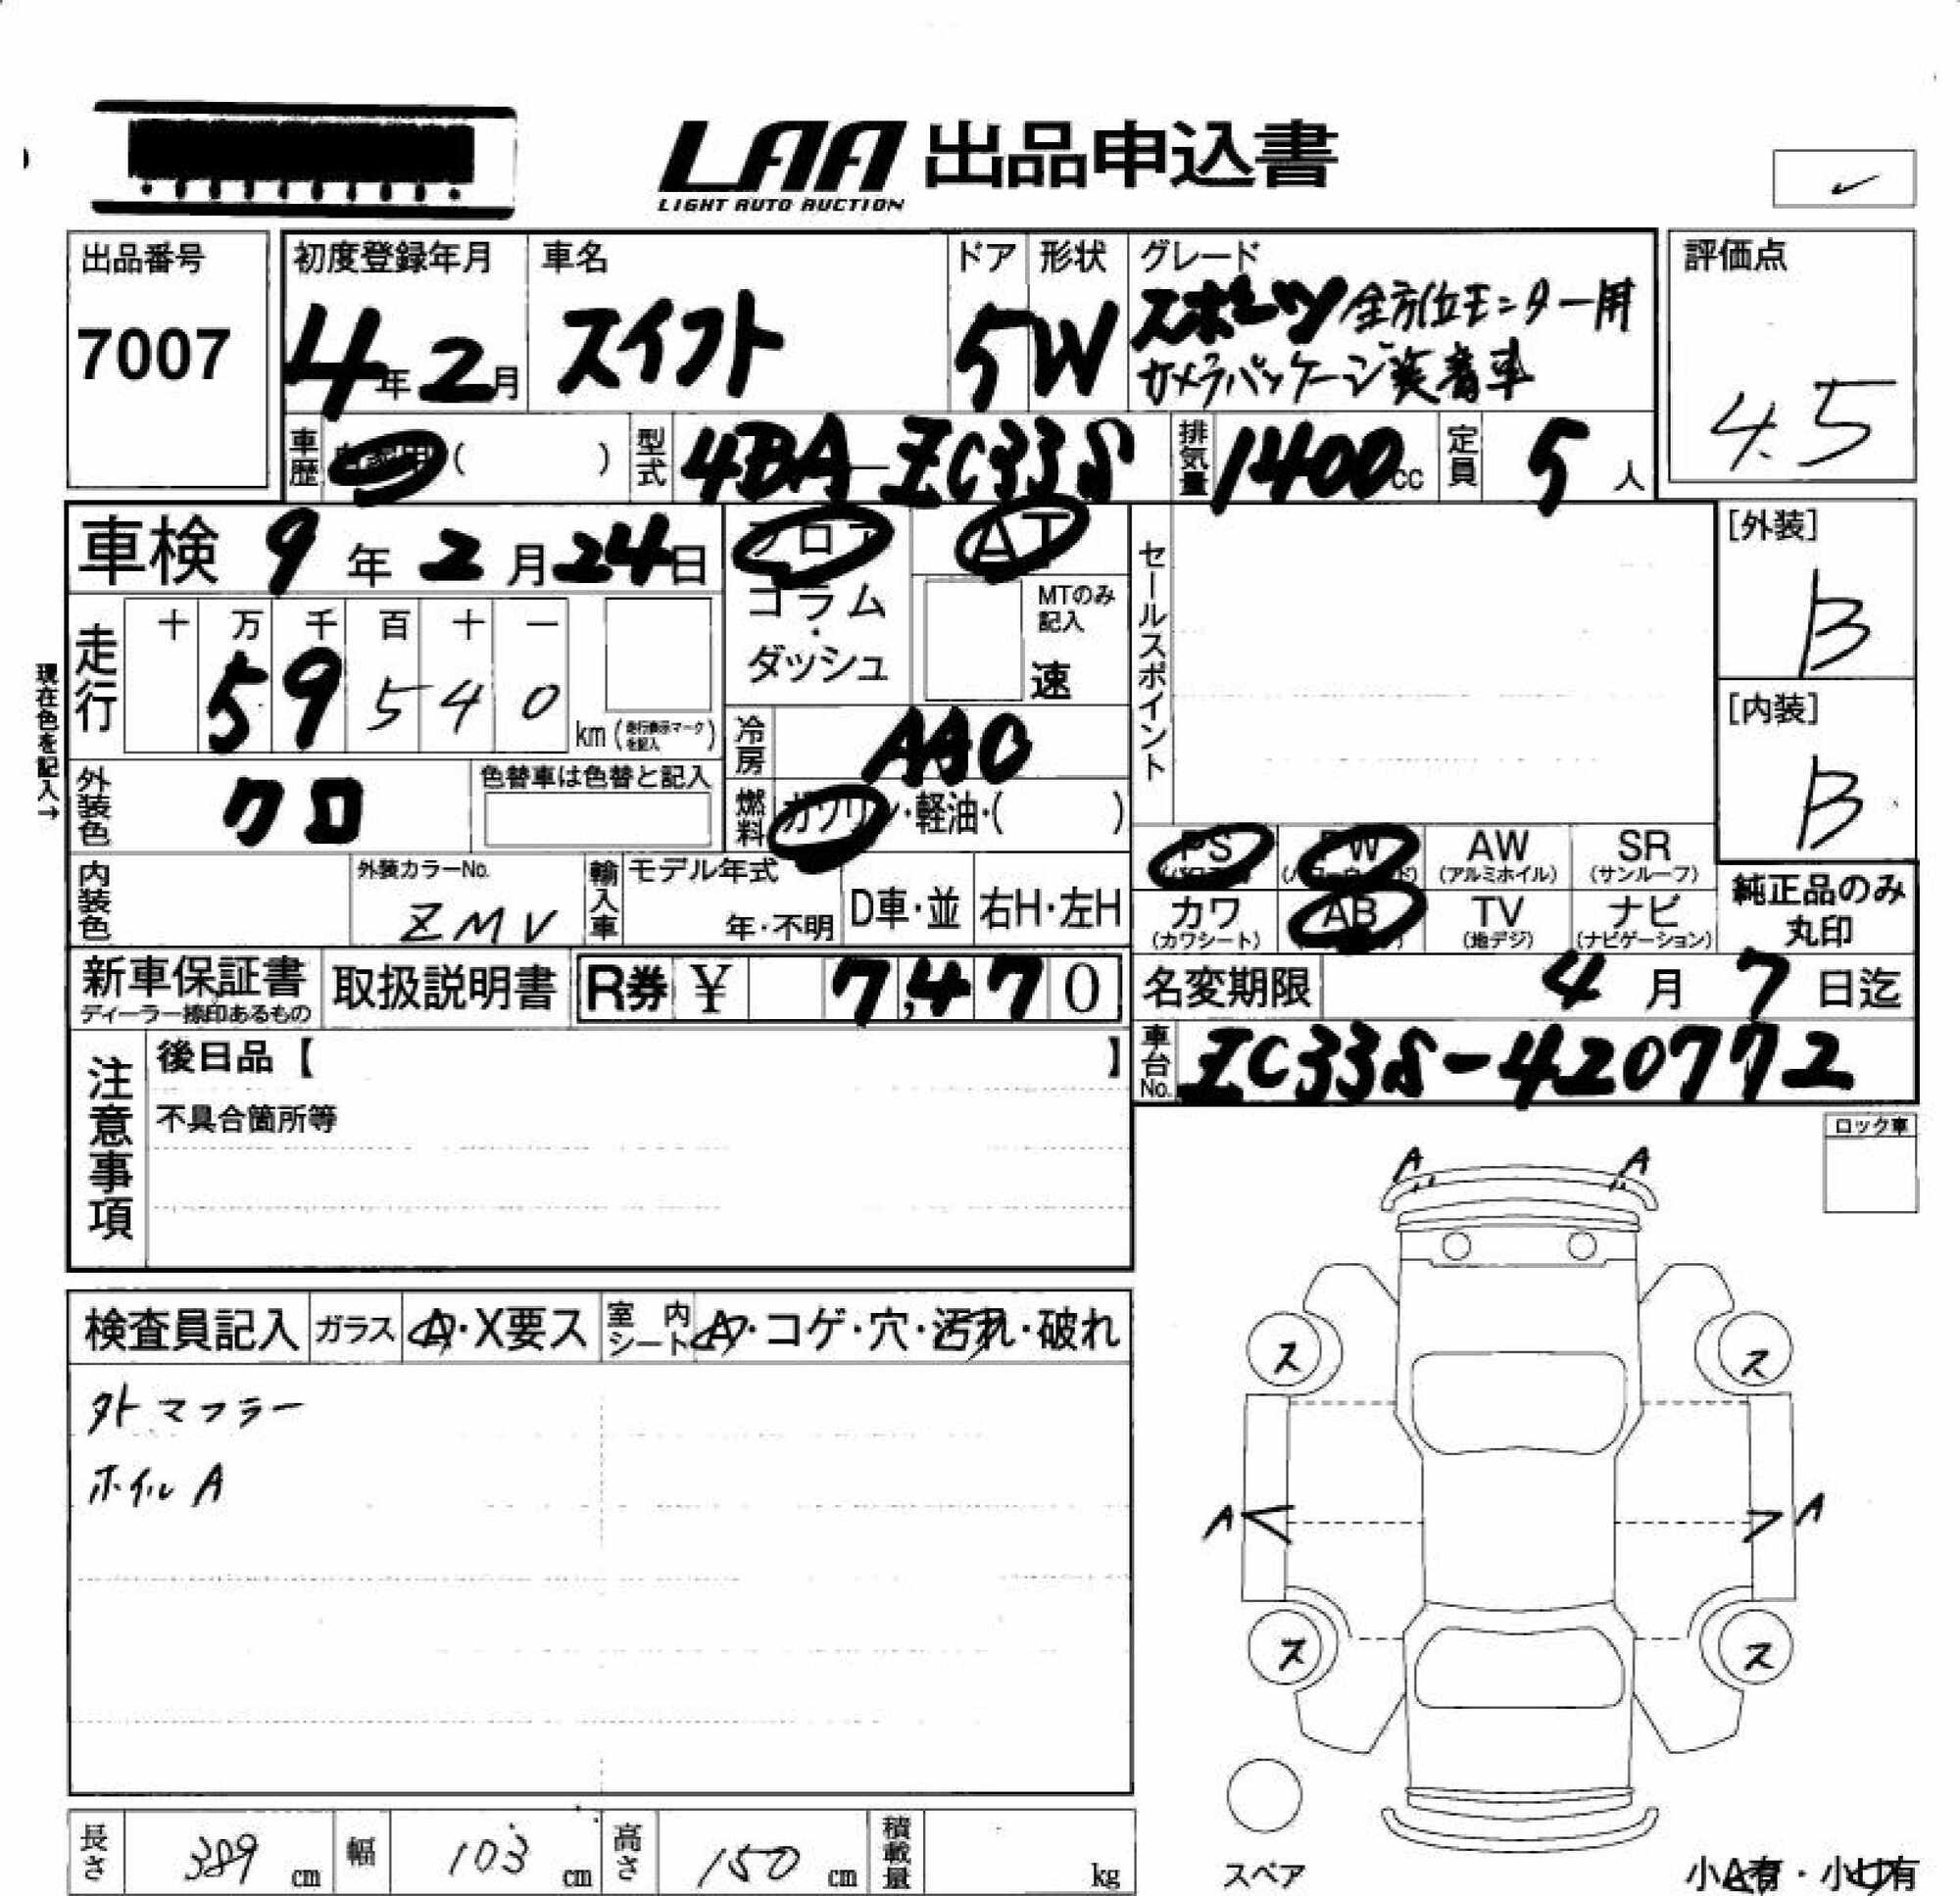 LAA 出品申込書
LIGHT AUTO AUCTION
出品番号
7007
初度登録年月
4年2月
車名
スイフト
ドア
5
形状
W
グレード
スポーツ 全方位モニター用
カメラパッケージ装着車
評価点
4.5
車歴
( )
型式
4BA-ZC33S
排気量
1400cc
定員
5人
[外装]
B
[内装]
B
車検 9年2月24日
フロア
コラム・
ダッシュ
AT
MTのみ記入
速
セールスポイント
現在色を記入→
走行
十 万 千 百 十 一
5 9 5 4 0
km (走行表示マークを記入)
冷房
AAC
外装色
クロ
色替車は色替と記入
燃料
ガソリン・軽油・( )
PS
PW
AW
(アルミホイル)
SR
(サンルーフ)
カワ
(カワシート)
AB
TV
(地デジ)
ナビ
(ナビゲーション)
純正品のみ
丸印
内装色
外装カラーNo.
ZMV
輸入車
モデル年式
年・不明
D車・並
右H・左H
新車保証書
ディーラー捺印あるもの
取扱説明書
R券 ¥ 7,470
名変期限 4月7日迄
車台No.
ZC33S-420772
注意事項
後日品【 】
不具合箇所等
ロック車
検査員記入
ガラス
A・X要ス
室内シート
A・コゲ・穴・汚れ・破れ
外マフラー
ホイルA
A A
ス ス
A A
ス ス
スペア
小A有・小U有
長さ 389 cm
幅 103 cm
高さ 150 cm
積載量 kg